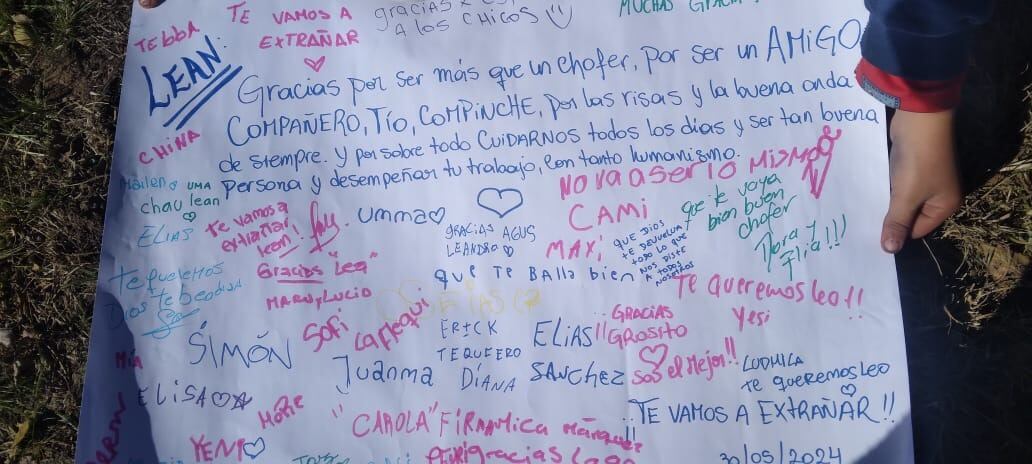 TE VAMOS A
EXTRAÑAR
gracias
A los CHICOS
MUCHAS
LEAN.
Gracias por ser más que un chofer, por ser un AMIGO
COMPAÑERO, TÍO, COMPINCHE, por las risas y la buena onda
de siempre. Y por sobre todo CUIDARNOS todos los días y ser tan buena
persona y desempeñar tu trabajo, con tanto humanismo.
CHINA
NO VA A SER LO MISMO
Mailen
UMA
chau lean
ELIAS
te vamos a
extrañar
lean!
umma
GRACIAS AGUS
LEANDRO
CAMI
MAXI
QUE DIOS
TE DEVUELVA
TODO LO QUE
NOS DISTE
A TODOS
NOSOTROS
que te vaya
bien buen
chofer
Flia!!!
Gracias "Lea"
MARU y LUCIO
QUE TE BALLA bien
Te queremos leo!!
Dios te bendiga
SIMÓN
SOFI
ERICK
TEQUERO
DÍANA
Juanma
ELIAS
SANCHEZ
GRACIAS
GROSITO
Sos el mejor!!
Yesi
LUDMILA
te queremos Leo
TE VAMOS A EXTRAÑAR!!
MÍA
ELISA
YENI
"CAROLA"
Márquez
gracias
30/05/2024